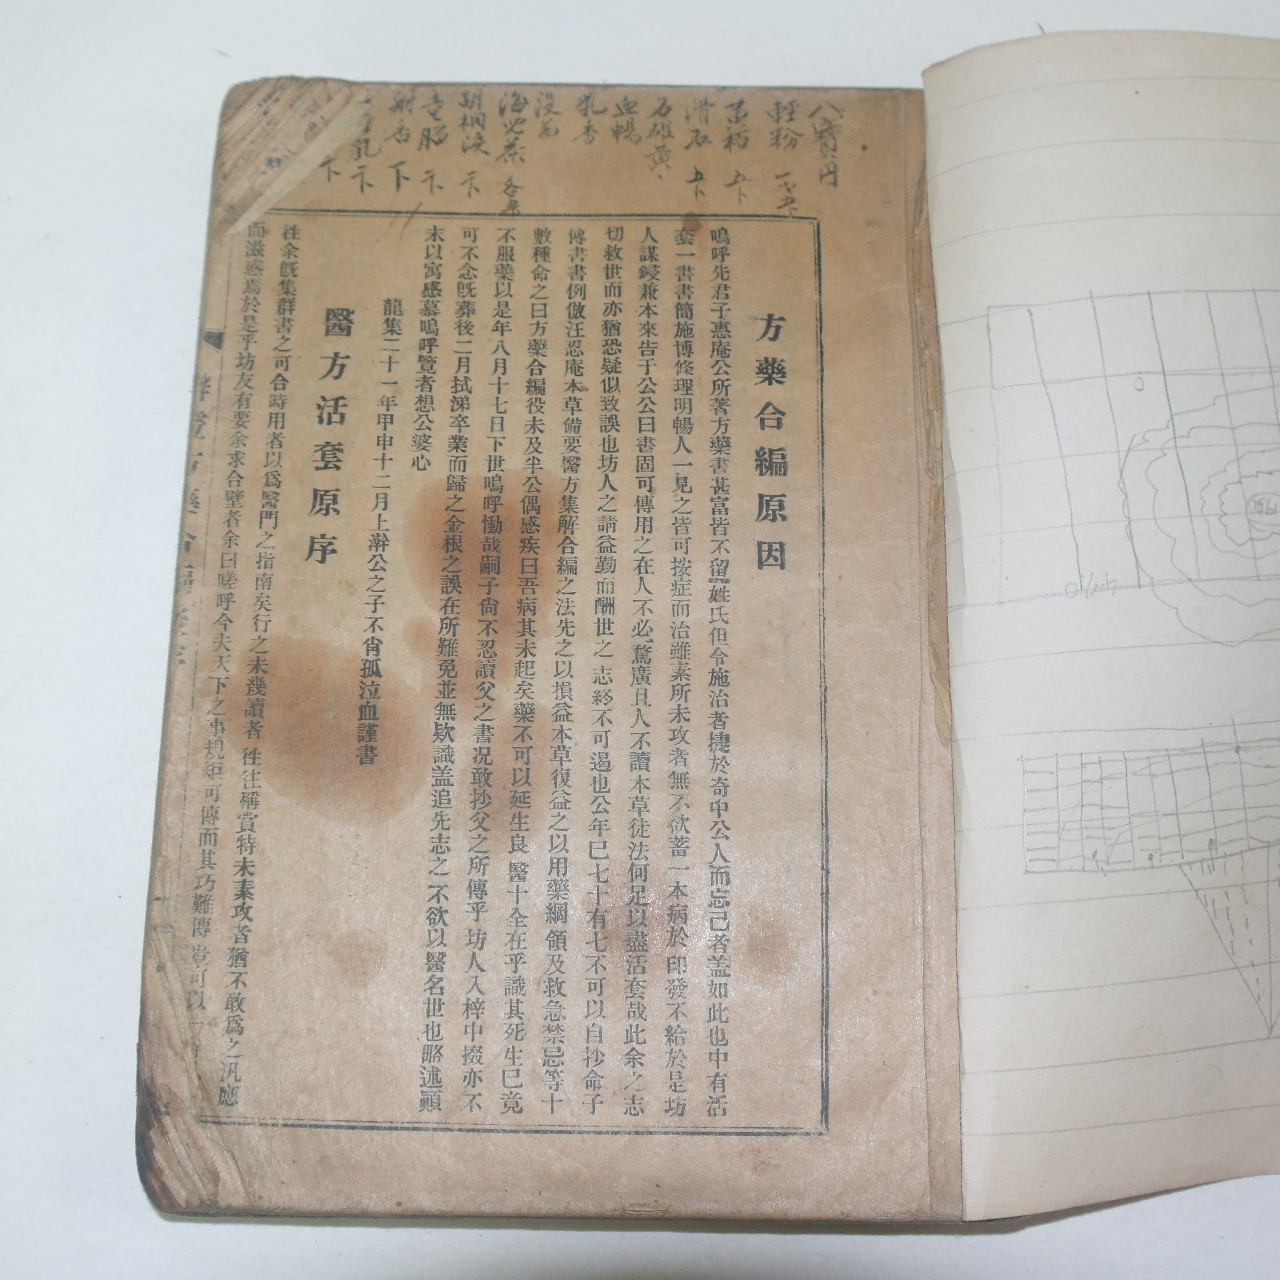 八寶円
輕粉 一戔五卜
滑石 五卜
石雄黃
血竭
乳香
沒薬
海兒茶 各
胡桐淚 一卜
龍腦 一卜
射香 下
方藥合編原因
嗚呼先君子惠庵公所著方藥書甚富皆不留姓氏但令施治者捷於奇中公人而忘己者盖如此也中有活
套一書書簡施博條理明暢人一見之皆可按症而治雖素所未攻者無不欲蓄一本病於印發不給於是坊
人謀鋟兼本來告于公公曰書固可傳用之在人不必騖廣且人不讀本草徒法何足以盡活套哉此余之志
切救世而亦猶恐疑似致誤也坊人之請益勤而酬世之志終不可遏也公年巳七十有七不可以自抄命子
傳書書例倣汪忍庵本草備要醫方集解合編之法先之以損益本草復益之以用藥綱領及救急禁忌等十
數種命之曰方藥合編役未及半公偶感疾曰吾病其未起矣藥不可以延生良醫十全在乎識其死生巳竟
不服藥以是年八月十七日下世嗚呼慟哉嗣子尙不忍讀父之書况敢抄父之所傳乎坊人入梓中掇亦不
可不念旣葬後二月拭涕卒業而歸之金根之誤在所難免並無欵識盖追先志之不欲以醫名世也略述顚
末以寓感慕嗚呼覽者想公婆心
龍集二十一年甲申十二月上澣公之子不肖孤泣血謹書
醫方活套原序
徃余旣集群書之可合時用者以爲醫門之指南矣行之未幾讀者徃往稱賞特未素攻者猶不敢爲之汎應
而滋惑焉於是乎坊友有要余求合璧者余曰嗟呼今夫天下之事規矩可傳而其巧難傳豈可以一